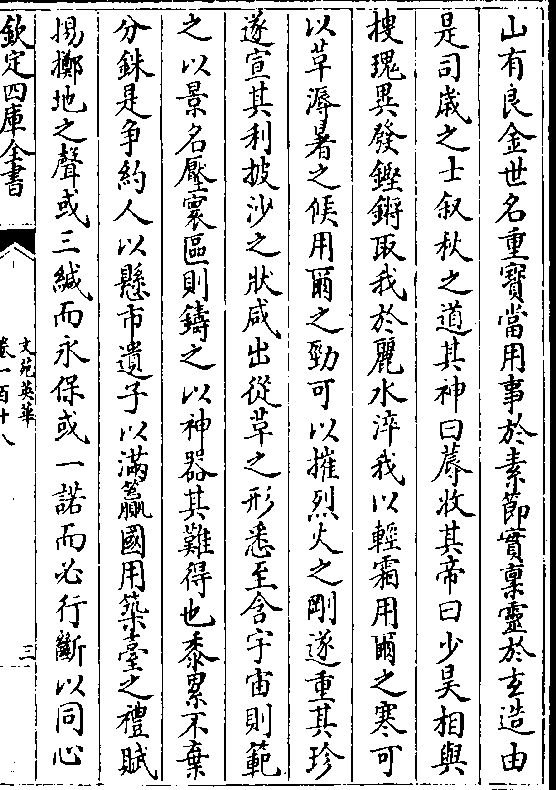 山有良金世名重寶當用事於素節實稟靈於玄造由
是司歳之士叙秋之道其神曰蓐收其帝曰少昊相與
搜瑰異發鏗鏘取我於麗水淬我以輕霜用爾之寒可
以革溽暑之候用爾之勁可以摧烈火之剛遂重其珍
遂宣其利披沙之狀咸出從革之形悉至含宇宙則範
之以景名壓寰區則鑄之以神器其難得也黍累不棄
分銖是争約人以懸市遺子以滿籯國用築臺之禮賦
掦擲地之聲或三緘而永保或一諾而必行斷以同心
欽定四庫全書
文苑英華
卷一百十八
三